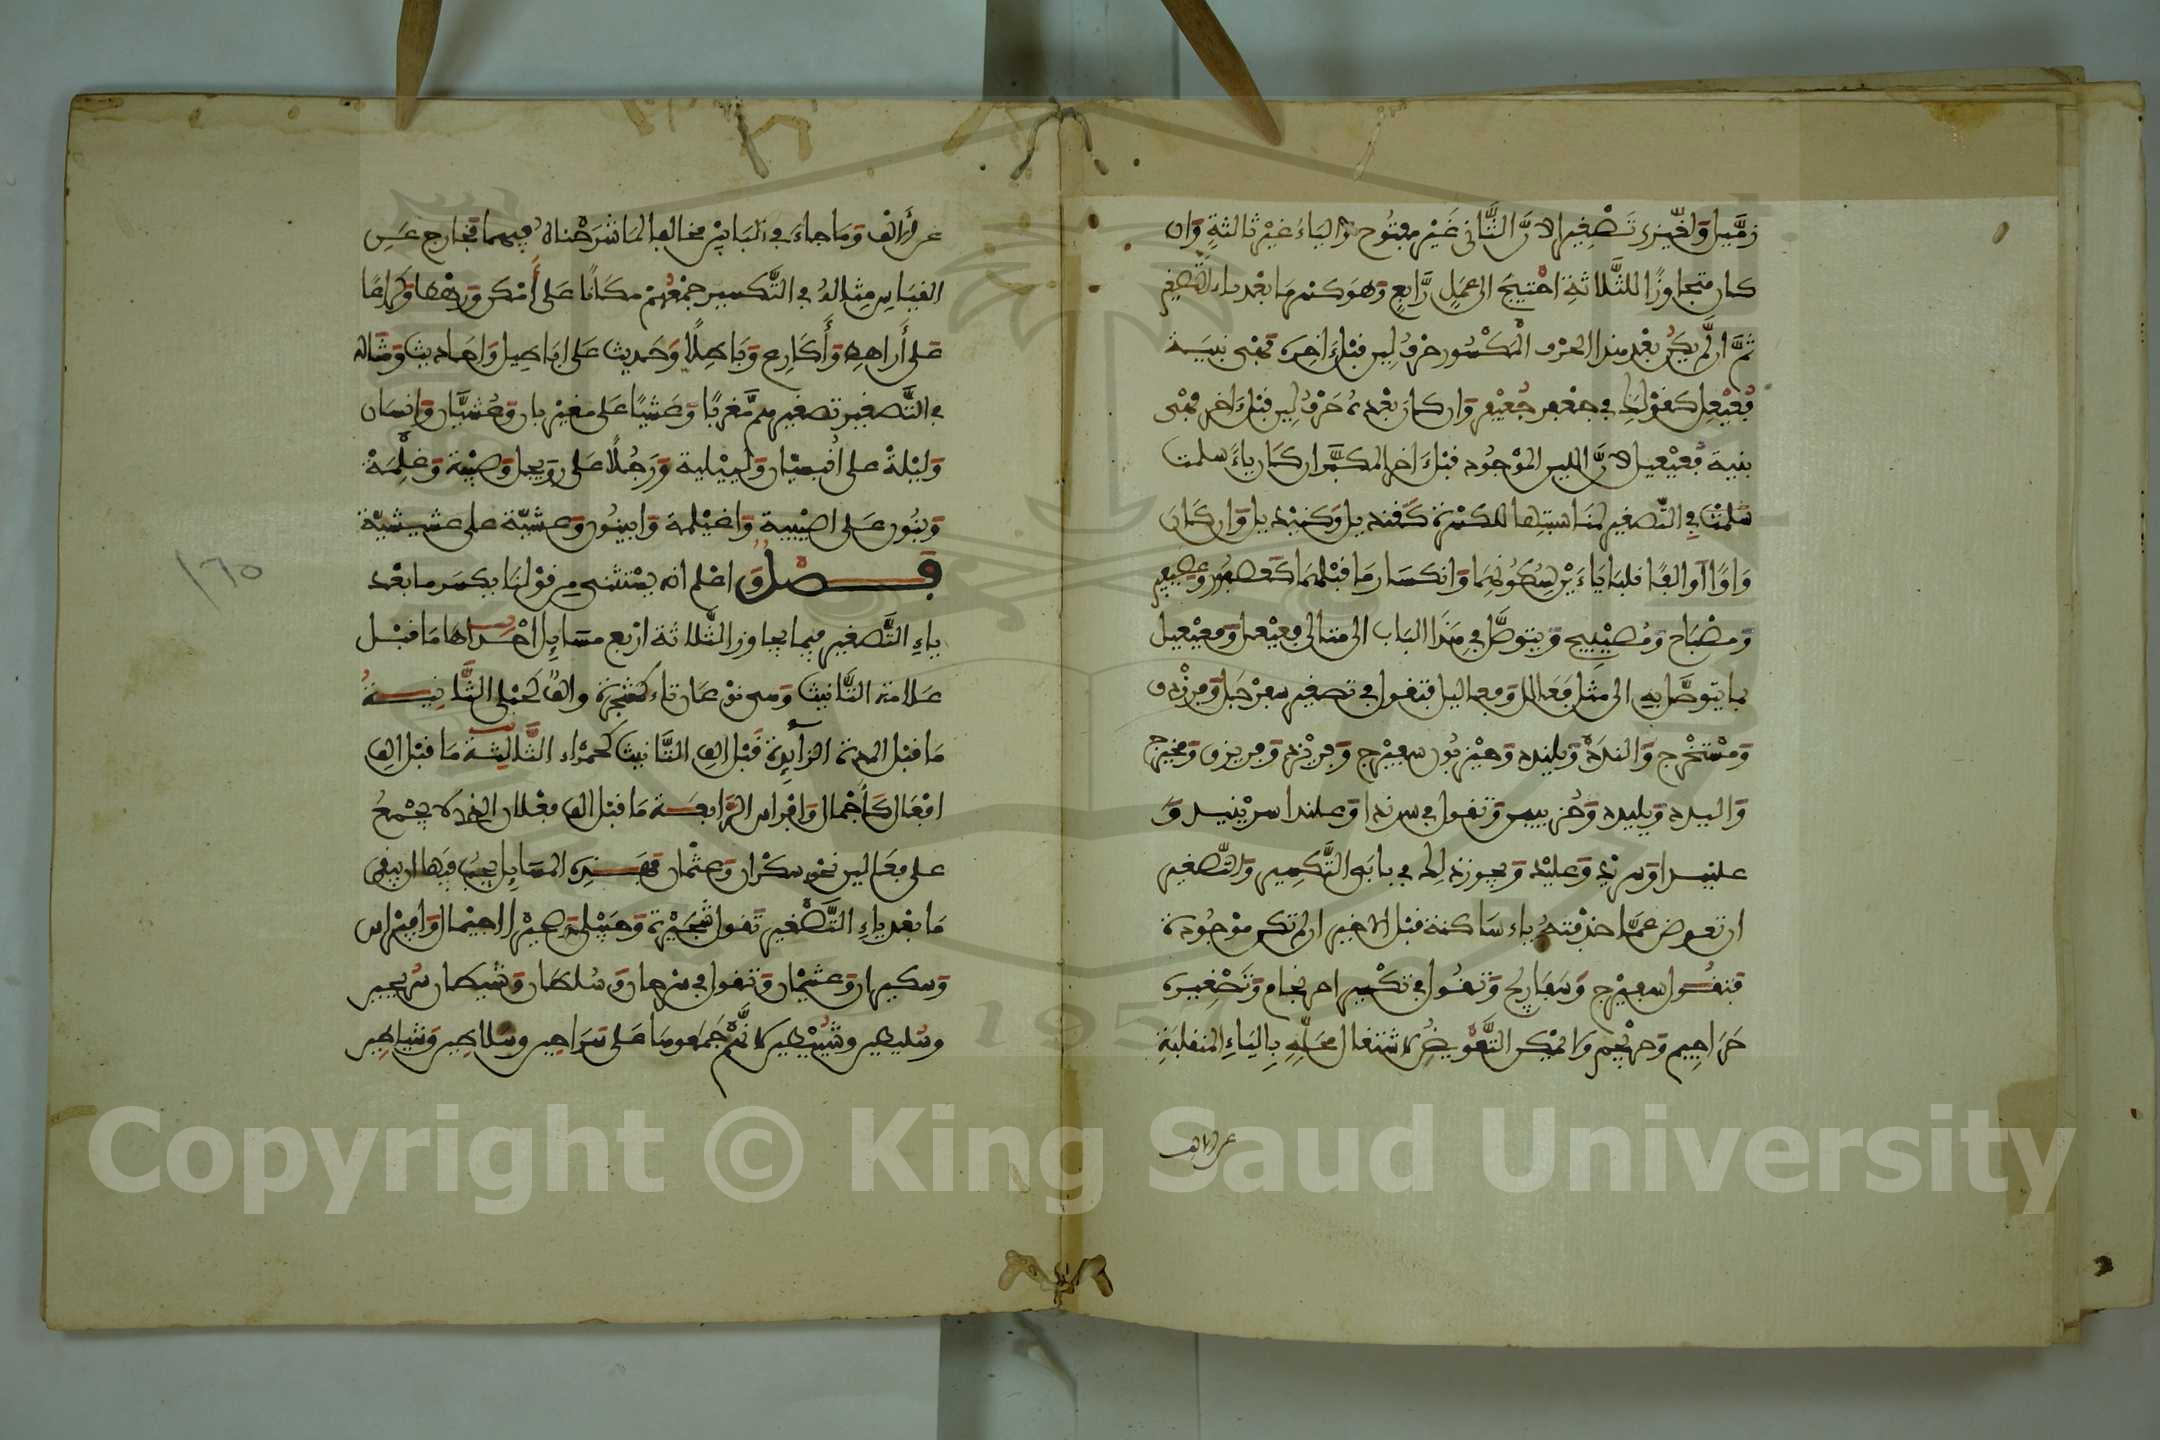 زمَّيل ولغَّيزى تصغيرا لانَّ الثَّاني غَيْر مفتُوح والياءُ غير ثالثةٍ وَان
كان متجاوزًا للثَّلاثةِ احْتيجَ الى عَمَلٍ رَّابعٍ وَهوَ كسْر مَا بعْد ياء التَّصغير
ثمَّ ان لَّم يكن بعْد هذا الحرْف المكْسُور حرْفُ لين قبْل اخره فهْى بنيَة
فُعَيْعِل كقوْلك في جعْفر جُعَيْفر وَان كانَ بعْدهُ حَرْفُ لين قبْل اخره فهْى
بنيةُ فُعَيْعيل لانَّ اللين الموْجُود قبْل اخر المكبَّر ان كان ياءً سلمت
سَلِمَتْ في التَّصغير لمنَاسَبَتِها للكسْرة كقنديل وَكنيْديل وَان كانَ
وَاوًا اَو الفًا قلبَا ياءَيْن لسُكونهمَا وَانكسَار مَا قبْلهمَا كعصفور وعصيفير
وَمصْبَاح وَمُصيْبيح وَيتوصَّل في هَذا البَاب الى مثالي فعيْعل وَفعيْعيل
بما يتوصَّل به الى مثل فَعَالل وفعاليل فتقول في تصغير سفرْجل وَفرزْدق
وَمسْتخْرج وَالندَدْ وَيلندد وَحيْزبُون سفيْرج وَفريْزد وَفريزق وَمخيْرج
وَاليدد وَيليدد وَحُزيبين وَتقول في سرندا وَعلندا سريْنيد وَ
علنيد اوَ سريْد وَعليْد وَيجوز ذلك في بابَي التَّكسِير وَالتَّصغير
ان تعوض عمَّا حذفتهُ ياء سَاكنة قبْل الاخير ان لم تكن موْجُودة
فتقُول سفيْرج وَسفارِيجُ وَتقُول في تكْسير احرنجام وَتصْغيره
حَرَاجيم وَحريْجيم ولا يمْكن التَّعْويضُ لاشتغال محلّهِ بِاليَاءِ المنقلبَةِ
عن الالف
عن الالف وَمَا جاءَ في البَابيْن مخالفا لما شرَحْناهُ فيهما فخارج عَن
القيَاس مثالهُ في التَّكسير جمْعُهمْ مكانًا عَلى أَمْكن وَرهْطا وَكراعًا
عَلى أَراهط وَأَكَارع وَبَاطلًا وَحَديث عَلى ابَاطيل وَاحَاديث وَمثالهُ
في التَّصغير تصغيرهم مَّغربًا وَعَشيًّا عَلى مغيْربان وَعُشيَّان وَانسَان
وَليْلةْ على اُنيسيَان وَلييْلية وَرَجُلًا عَلى روَيجل وَصبْية وَغلْمَةْ
وَبنُون عَلى اصيْبية وَاغيْلمة وَابينُون وَعشيّة على عشيشيّة
فصل وَ اعْلم انه يسْتثنى من قوْلنَا يكسَر ما بعْد
ياءِ التَّصغير فيما يجاوز الثَّلاثة ارْبع مسَايِل احْدَاهَا مَا قبْل
عَلامة التَّانيث وَهي نوْعَان تاء كشَجَرة والف كحُبْلى الثَّانيةُ
مَا قبْل المدة الزَّايدِة قَبْل الف التَّانيث كحمْرَاء الثَّالثة مَا قبْل الف
افْعَال كَأجْمال وَافْراس الرَّابعَة مَا قبْل الف فعْلان الذي لا يجْمعُ
على فعَالين نحْو سكْران وَعثْمان فهَذِه المسَايل يجبُ فيهَا ان يبْقى
مَا بعْد ياءِ التَّصْغير تَقول شُجَيْرة وَحبَيْلى وَحميْرا اجيْمال وَافيْراس
وَسكيران وَعثيْمان وَتقول في سرْحان وَسُلطَان وَشيطان سُريْحين
وسُليطين وشُيَيْطين لانَّهُمْ جَمَعُوهَا على سَرَاحين وسَلاطين وَشيَاطِين
١٦٥
Copyright © King Saud University
1957